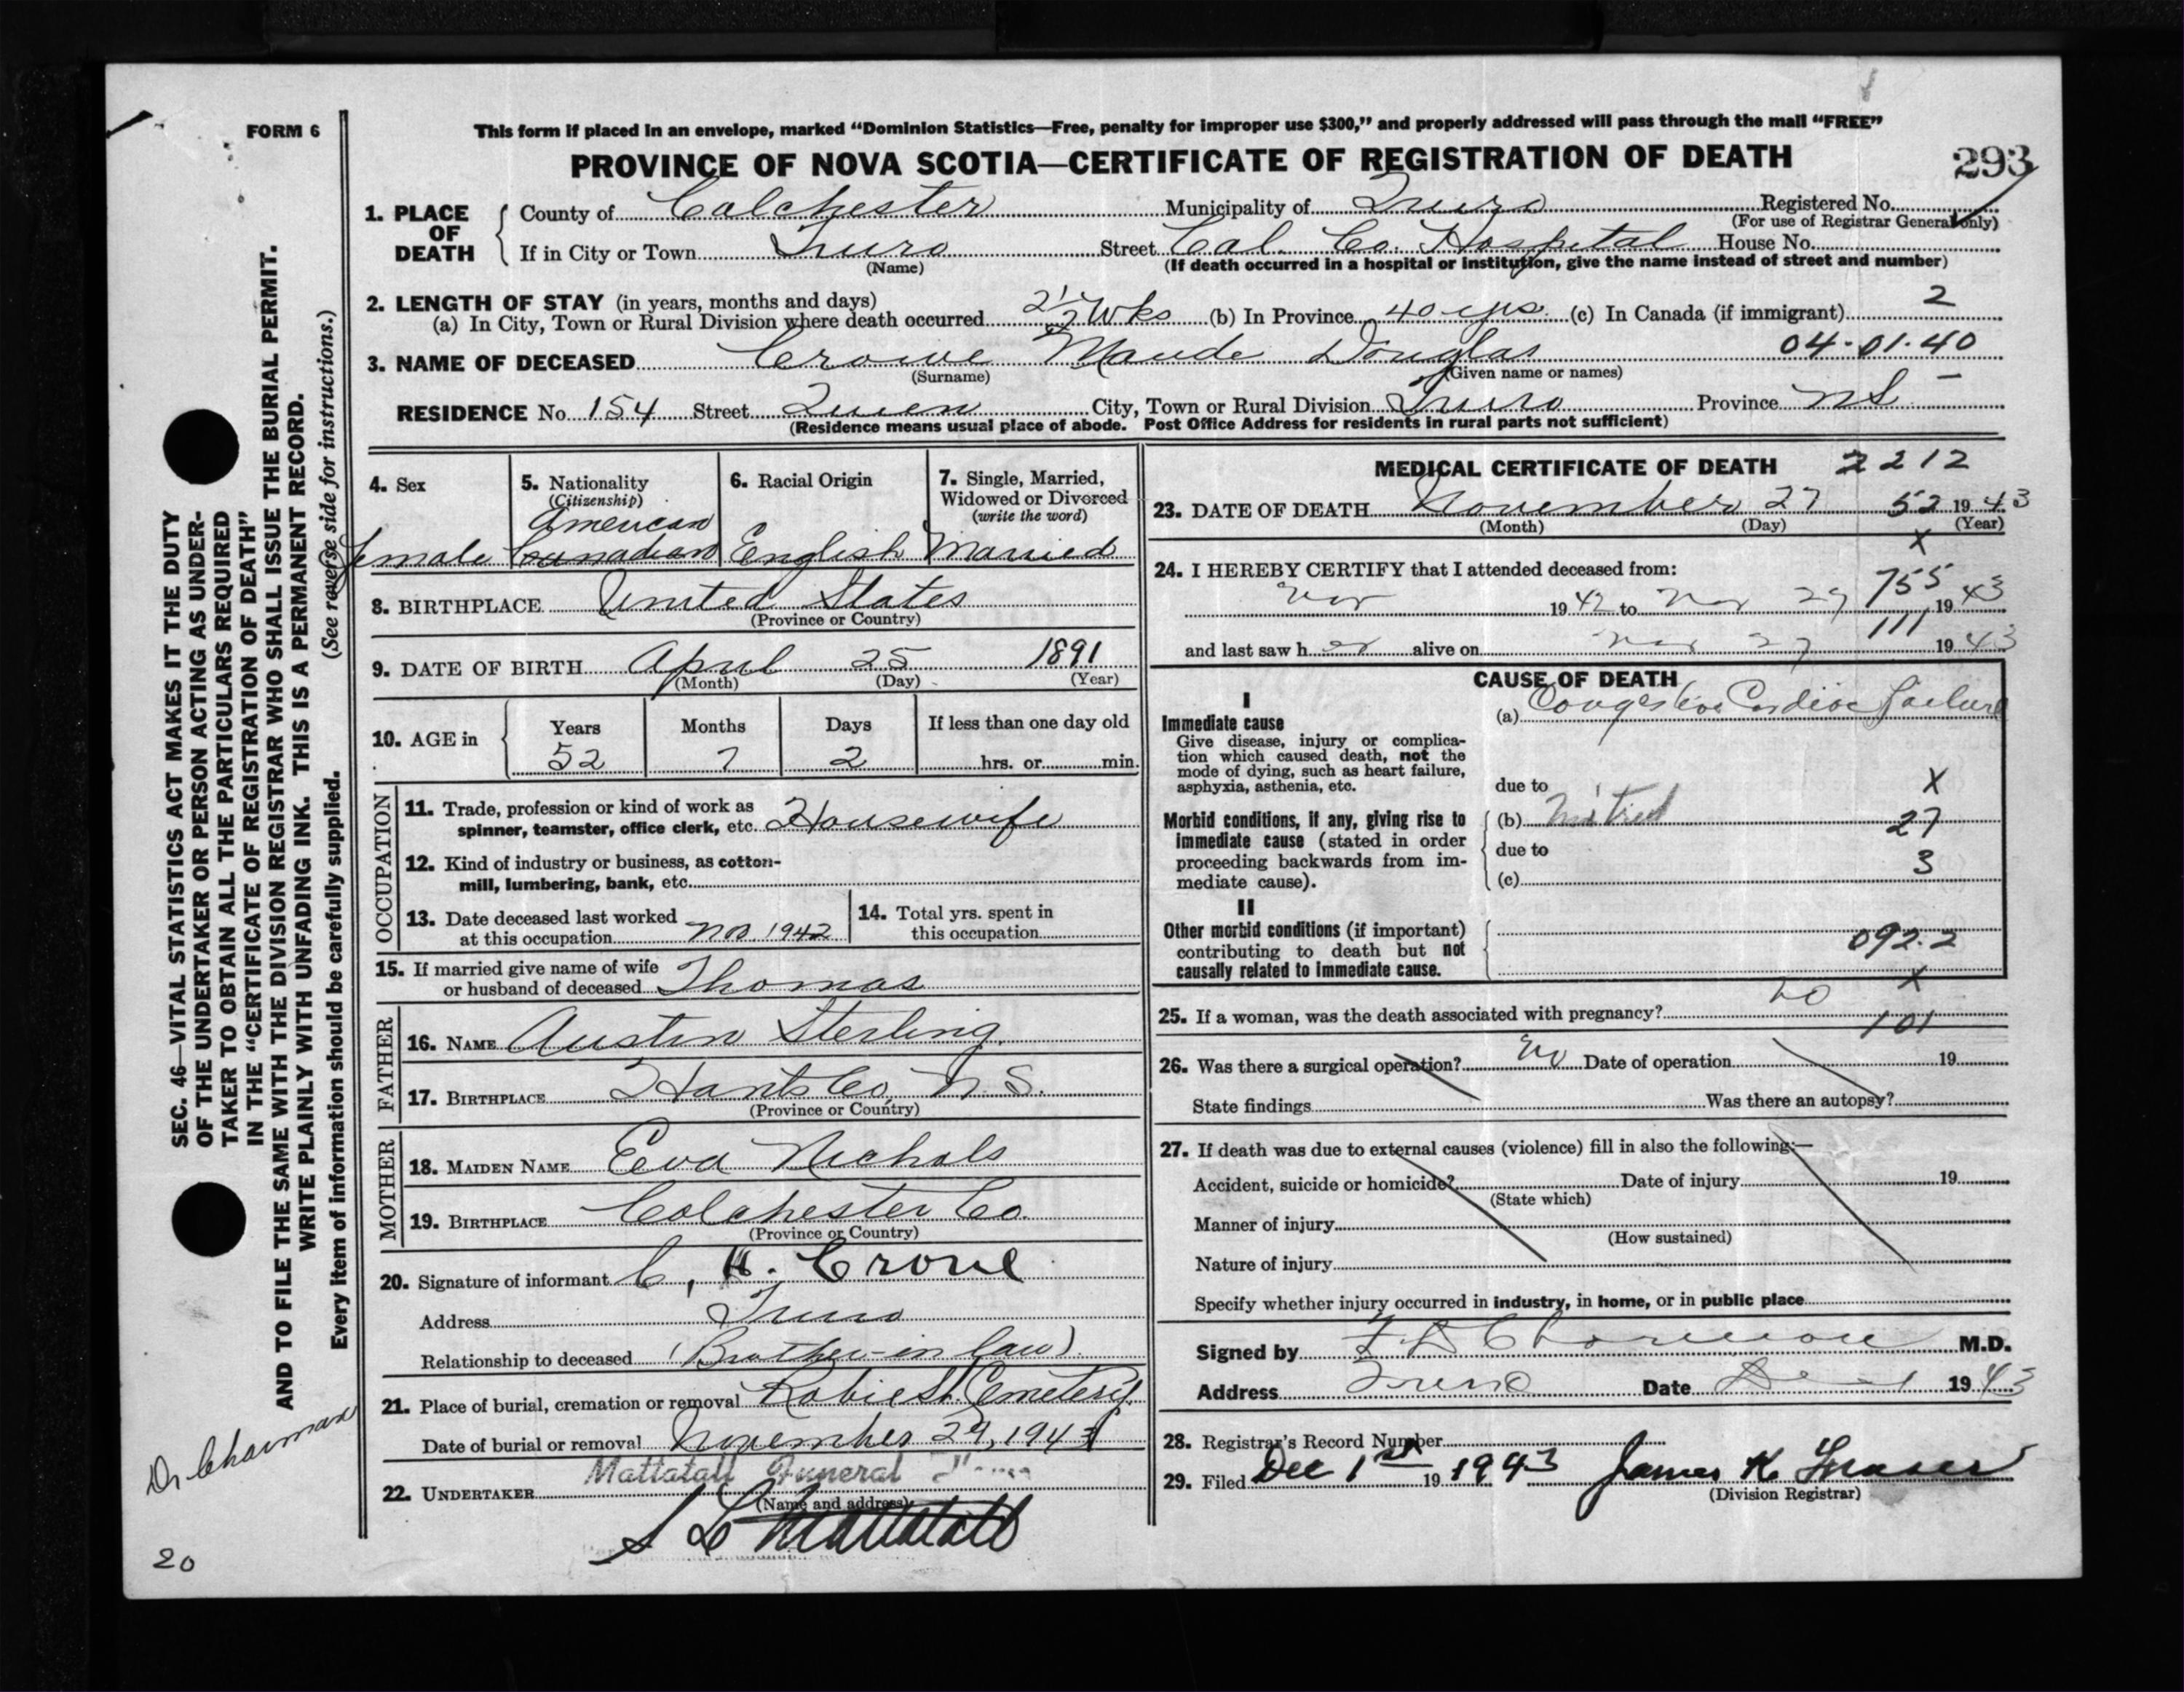 FORM 6
This form if placed in an envelope, marked “Dominion Statistics—Free, penalty for improper use $300,” and properly addressed will pass through the mail “FREE”
PROVINCE OF NOVA SCOTIA—CERTIFICATE OF REGISTRATION OF DEATH
293
1. PLACE OF DEATH
County of Colchester Municipality of Truro Registered No.
(For use of Registrar General only)
If in City or Town Truro Street Col. Co. Hospital House No.
(Name) (If death occurred in a hospital or institution, give the name instead of street and number)
2. LENGTH OF STAY (in years, months and days)
(a) In City, Town or Rural Division where death occurred 2½ Wks (b) In Province 40 yrs. (c) In Canada (if immigrant) 2
3. NAME OF DECEASED Crowe Maude Douglas 04-01-40
(Surname) (Given name or names)
RESIDENCE No. 154 Street Queen City, Town or Rural Division Truro Province NS –
(Residence means usual place of abode. Post Office Address for residents in rural parts not sufficient)
4. Sex female
5. Nationality (Citizenship) American Canadian
6. Racial Origin English
7. Single, Married, Widowed or Divorced (write the word) Married
8. BIRTHPLACE United States
(Province or Country)
9. DATE OF BIRTH April 25 1891
(Month) (Day) (Year)
10. AGE in Years 52 Months 7 Days 2 If less than one day old hrs. or min.
OCCUPATION
11. Trade, profession or kind of work as
spinner, teamster, office clerk, etc. Housewife
12. Kind of industry or business, as cotton-
mill, lumbering, bank, etc.
13. Date deceased last worked
at this occupation Nov. 1942
14. Total yrs. spent in
this occupation
15. If married give name of wife
or husband of deceased Thomas
FATHER
16. NAME Austin Sterling
17. BIRTHPLACE Hants Co, N.S.
(Province or Country)
MOTHER
18. MAIDEN NAME Eva Nichols
19. BIRTHPLACE Colchester Co.
(Province or Country)
20. Signature of informant C. H. Crowe
Address Truro
Relationship to deceased (Brother-in law)
21. Place of burial, cremation or removal Robie St. Cemetery
Date of burial or removal November 29, 1943
22. UNDERTAKER Mattatall Funeral Home
(Name and address)
S L Mattatall
MEDICAL CERTIFICATE OF DEATH 2212
23. DATE OF DEATH November 27 52 1943
(Month) (Day) (Year)
X
24. I HEREBY CERTIFY that I attended deceased from:
755
Nov 1942 to Nov 27, 1943
111
and last saw her alive on Nov 27 1943
CAUSE OF DEATH
I
Immediate cause
Give disease, injury or complica-
tion which caused death, not the
mode of dying, such as heart failure,
asphyxia, asthenia, etc.
(a) Congestive Cardiac failure
due to X
Morbid conditions, if any, giving rise to
immediate cause (stated in order
proceeding backwards from im-
mediate cause).
(b) Mitral 27
due to 3
(c)
II
Other morbid conditions (if important)
contributing to death but not
causally related to immediate cause.
092.2
X
25. If a woman, was the death associated with pregnancy? no
101
26. Was there a surgical operation? No Date of operation 19
State findings Was there an autopsy?
27. If death was due to external causes (violence) fill in also the following:—
Accident, suicide or homicide? Date of injury 19
(State which)
Manner of injury
(How sustained)
Nature of injury
Specify whether injury occurred in industry, in home, or in public place
Signed by Charman M.D.
Address Truro Date Dec 1 1943
28. Registrar's Record Number
29. Filed Dec 1st 19 1943 James K. Fraser
(Division Registrar)
SEC. 46—VITAL STATISTICS ACT MAKES IT THE DUTY
OF THE UNDERTAKER OR PERSON ACTING AS UNDER-
TAKER TO OBTAIN ALL THE PARTICULARS REQUIRED
IN THE “CERTIFICATE OF REGISTRATION OF DEATH”
AND TO FILE THE SAME WITH THE DIVISION REGISTRAR WHO SHALL ISSUE THE BURIAL PERMIT.
WRITE PLAINLY WITH UNFADING INK. THIS IS A PERMANENT RECORD.
Every item of information should be carefully supplied. (See reverse side for instructions.)
Dr Charman
20